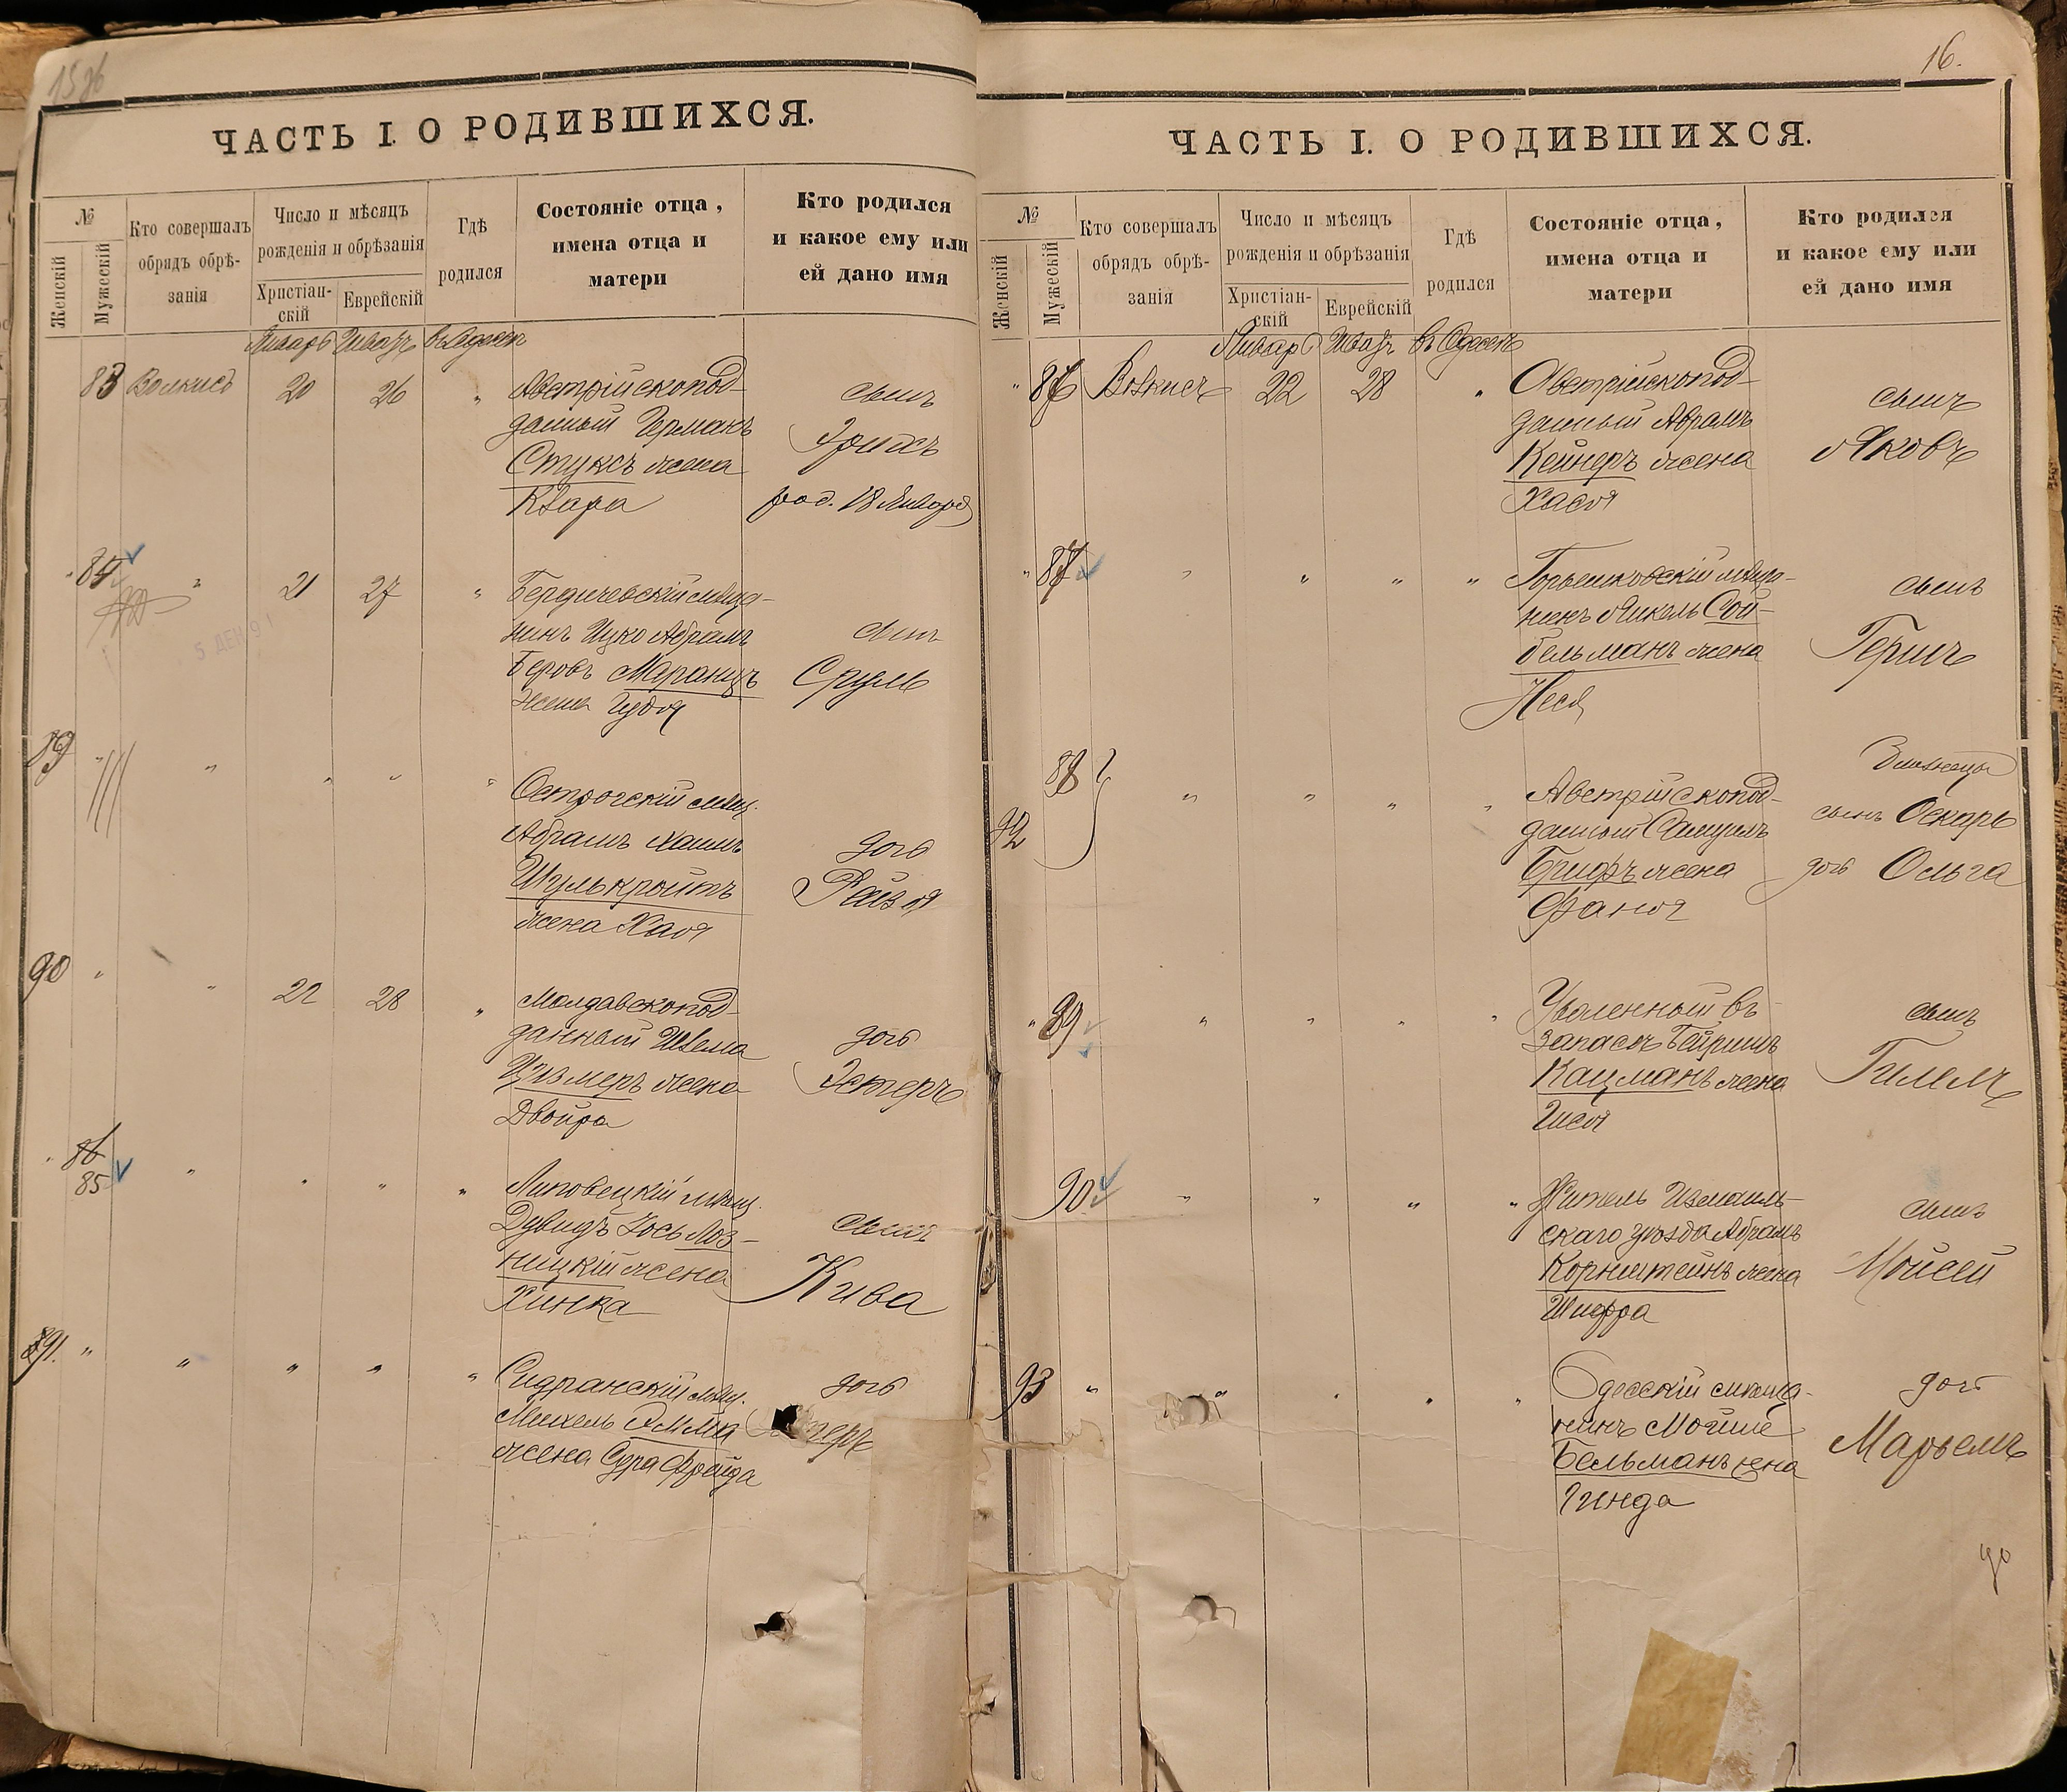 ЧАСТЬ I. О РОДИВШИХСЯ.
№
Женскій
Мужескій
Кто совершалъ
обрядъ обрѣ-
занія
Число и мѣсяцъ
рожденія и обрѣзанія
Христіан-
скій
Еврейскій
Гдѣ
родился
Состояніе отца,
имена отца и
матери
Кто родился
и какое ему или
ей дано имя
Январь Шватъ въ Одессѣ
83 20 26 " Австрійскопод-
данный Германъ
Стуксъ жена
Клара
сынъ
род. 18 Января
84 " 21 27 " Бердичевскій мѣща-
нинъ Ицко Абрамъ
Беровъ Маранцъ
жена Гудя
сынъ
Сруль
5 ДЕК 91
89 " " " " " Острогскій мѣщ.
Абрамъ Хаимъ
Шулькройтъ
жена Хая
дочь
Райзя
90 " " 22 28 " Молдавскопод-
данный Шлема
Цизмеръ жена
Двойра
дочь
Эстеръ
" 86
85 " " " " Липовецкій мѣщ.
Дувидъ Іось Лоз-
ницкій жена
Хинка
сынъ
Кива
91. " " " " " мѣщ.
жена Сура Фрейда
дочь
16.
ЧАСТЬ I. О РОДИВШИХСЯ.
№
Женскій
Мужескій
Кто совершалъ
обрядъ обрѣ-
занія
Число и мѣсяцъ
рожденія и обрѣзанія
Христіан-
скій
Еврейскій
Гдѣ
родился
Состояніе отца,
имена отца и
матери
Кто родился
и какое ему или
ей дано имя
Январь Шватъ въ Одессѣ
" 86 22 28 " Австрійскопод-
данный Абрамъ
Кейнеръ жена
Хася
сынъ
Яковъ
" 87 " " " "
Янкель Сой-
бельманъ жена
Неся
сынъ
Гершъ
88
92 " " " " Австрійскопод-
данный Самуилъ
Грифъ жена
Фаня
Близнецы
сынъ Оскаръ
дочь Ольга
" 89 " " " " Уволенный въ
запасъ Бейришъ
Кацманъ жена
Шася
сынъ
Гилель
90 " " " " Житель Измаиль-
скаго уѣзда Абрамъ
Корнштейнъ жена
Шифра
сынъ
Мойсей
93 " " " " " Одесскій мѣща-
нинъ Мойше
Бельманъ жена
Гинда
дочь
Марьемъ